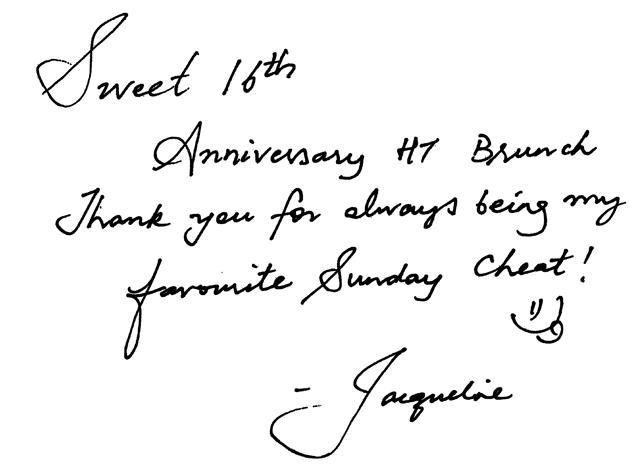 Sweet 16th
Anniversary HT Brunch
Thank you for always being my
favourite Sunday Cheat!
- Jacqueline